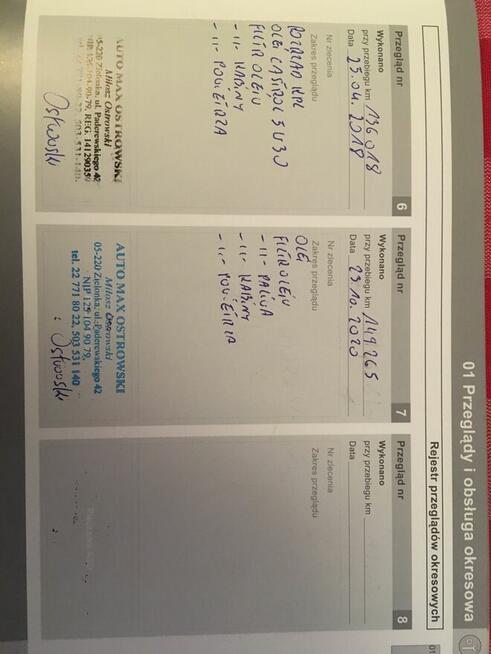 01 Przeglądy i obsługa okresowa
Rejestr przeglądów okresowych
Przegląd nr 6
Wykonano
przy przebiegu km 136 018
Data 25.04.2018
Nr zlecenia
Zakres przeglądu
ROZRZĄD KPL
OLEJ CASTROL 5W30
FILTR OLEJU
-11- KABINY
-11- POWIETRZA
AUTO MAX OSTROWSKI
Miłosz Ostrowski
05-220 Zielonka, ul. Paderewskiego 42
Ostrowski
Przegląd nr 7
Wykonano
przy przebiegu km 149 265
Data 23.10.2020
Nr zlecenia
Zakres przeglądu
OLEJ
FILTR OLEJU
-11- PALIWA
-11- KABINY
-11- POWIETRZA
AUTO MAX OSTROWSKI
Miłosz Ostrowski
05-220 Zielonka, ul. Paderewskiego 42
NIP 125 104 90 79,
tel. 22 771 80 22, 503 531 140
Ostrowski
Przegląd nr 8
Wykonano
przy przebiegu km
Data
Nr zlecenia
Zakres przeglądu